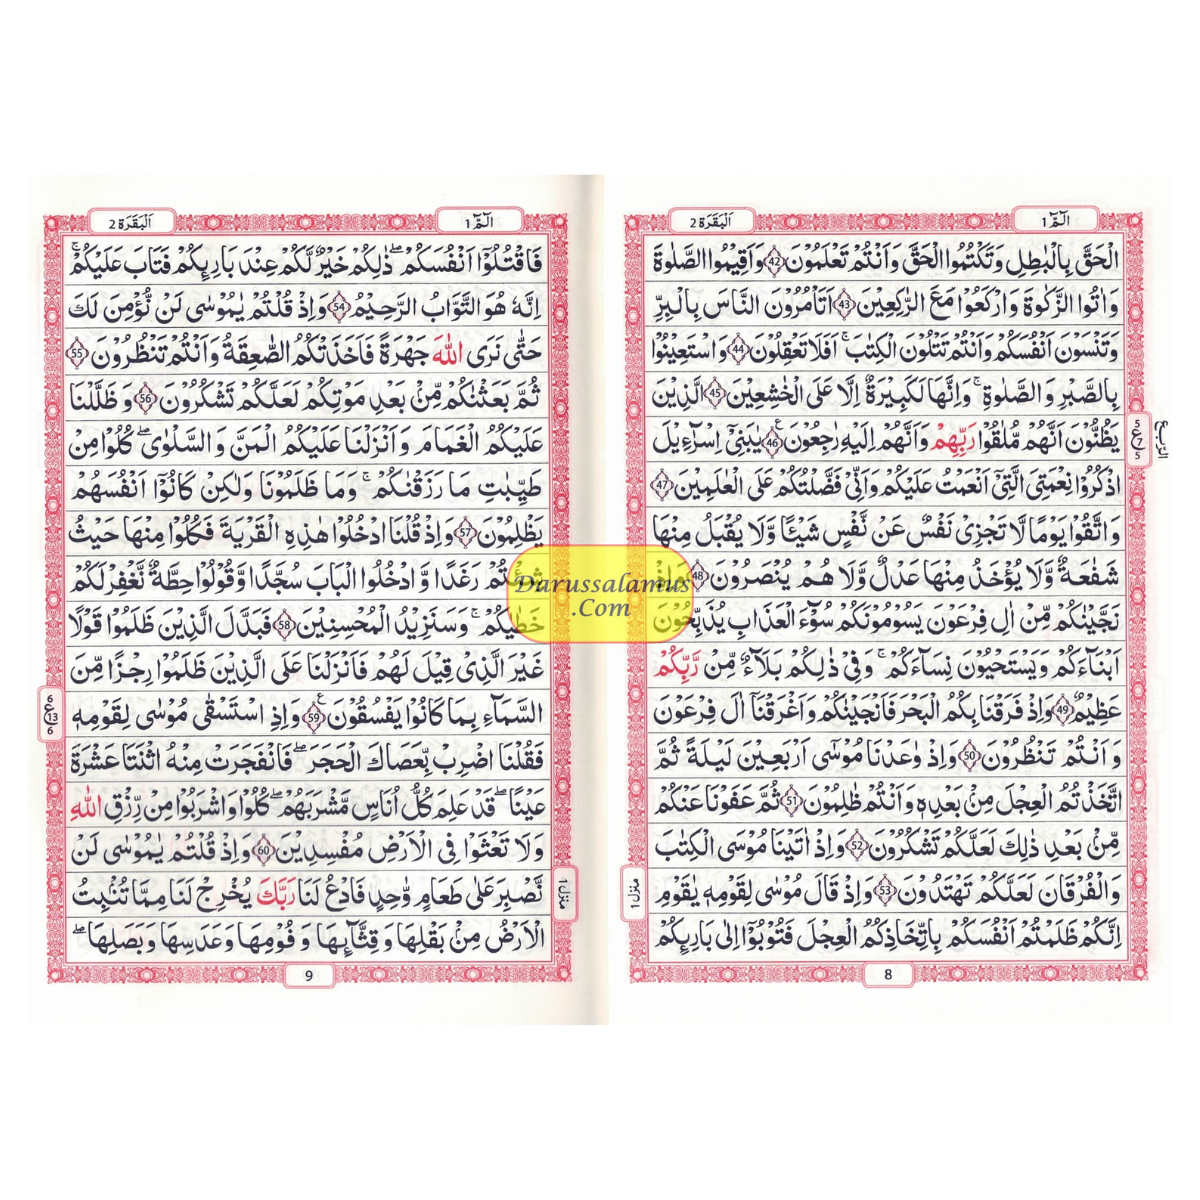 الٓمّٓ 1
اَلْبَقَرَة 2
الْحَقَّ بِالْبٰطِلِ وَتَكْتُمُوا الْحَقَّ وَاَنْتُمْ تَعْلَمُوْنَ 42 وَاَقِيْمُوا الصَّلٰوةَ
وَاٰتُوا الزَّكٰوةَ وَارْكَعُوْا مَعَ الرّٰكِعِيْنَ 43 اَتَاْمُرُوْنَ النَّاسَ بِالْبِرِّ
وَتَنْسَوْنَ اَنْفُسَكُمْ وَاَنْتُمْ تَتْلُوْنَ الْكِتٰبَ ۚ اَفَلَا تَعْقِلُوْنَ 44 وَاسْتَعِيْنُوْا
بِالصَّبْرِ وَالصَّلٰوةِ ۚ وَاِنَّهَا لَكَبِيْرَةٌ اِلَّا عَلَى الْخٰشِعِيْنَ 45 الَّذِيْنَ
يَظُنُّوْنَ اَنَّهُمْ مُّلٰقُوْا رَبِّهِمْ وَاَنَّهُمْ اِلَيْهِ رٰجِعُوْنَ 46 يٰبَنِيْٓ اِسْرَآءِيْلَ
اذْكُرُوْا نِعْمَتِيَ الَّتِيْٓ اَنْعَمْتُ عَلَيْكُمْ وَاَنِّيْ فَضَّلْتُكُمْ عَلَى الْعٰلَمِيْنَ 47
وَاتَّقُوْا يَوْمًا لَّا تَجْزِيْ نَفْسٌ عَنْ نَّفْسٍ شَيْـًٔا وَّلَا يُقْبَلُ مِنْهَا
شَفَاعَةٌ وَّلَا يُؤْخَذُ مِنْهَا عَدْلٌ وَّلَا هُمْ يُنْصَرُوْنَ 48 وَاِذْ
نَجَّيْنٰكُمْ مِّنْ اٰلِ فِرْعَوْنَ يَسُوْمُوْنَكُمْ سُوْٓءَ الْعَذَابِ يُذَبِّحُوْنَ
اَبْنَآءَكُمْ وَيَسْتَحْيُوْنَ نِسَآءَكُمْ ۚ وَفِيْ ذٰلِكُمْ بَلَآءٌ مِّنْ رَّبِّكُمْ
عَظِيْمٌ 49 وَاِذْ فَرَقْنَا بِكُمُ الْبَحْرَ فَاَنْجَيْنٰكُمْ وَاَغْرَقْنَآ اٰلَ فِرْعَوْنَ
وَاَنْتُمْ تَنْظُرُوْنَ 50 وَاِذْ وٰعَدْنَا مُوْسٰٓى اَرْبَعِيْنَ لَيْلَةً ثُمَّ
اتَّخَذْتُمُ الْعِجْلَ مِنْ بَعْدِهٖ وَاَنْتُمْ ظٰلِمُوْنَ 51 ثُمَّ عَفَوْنَا عَنْكُمْ
مِّنْ بَعْدِ ذٰلِكَ لَعَلَّكُمْ تَشْكُرُوْنَ 52 وَاِذْ اٰتَيْنَا مُوْسَى الْكِتٰبَ
وَالْفُرْقَانَ لَعَلَّكُمْ تَهْتَدُوْنَ 53 وَاِذْ قَالَ مُوْسٰى لِقَوْمِهٖ يٰقَوْمِ
اِنَّكُمْ ظَلَمْتُمْ اَنْفُسَكُمْ بِاتِّخَاذِكُمُ الْعِجْلَ فَتُوْبُوْٓا اِلٰى بَارِئِكُمْ
الربع
5
ع 7
5
منزل 1
8
الٓمّٓ 1
اَلْبَقَرَة 2
فَاقْتُلُوْٓا اَنْفُسَكُمْ ؕ ذٰلِكُمْ خَيْرٌ لَّكُمْ عِنْدَ بَارِئِكُمْ فَتَابَ عَلَيْكُمْ ۚ
اِنَّهٗ هُوَ التَّوَّابُ الرَّحِيْمُ 54 وَاِذْ قُلْتُمْ يٰمُوْسٰى لَنْ نُّؤْمِنَ لَكَ
حَتّٰى نَرَى اللّٰهَ جَهْرَةً فَاَخَذَتْكُمُ الصّٰعِقَةُ وَاَنْتُمْ تَنْظُرُوْنَ 55
ثُمَّ بَعَثْنٰكُمْ مِّنْ بَعْدِ مَوْتِكُمْ لَعَلَّكُمْ تَشْكُرُوْنَ 56 وَظَلَّلْنَا
عَلَيْكُمُ الْغَمَامَ وَاَنْزَلْنَا عَلَيْكُمُ الْمَنَّ وَالسَّلْوٰى ؕ كُلُوْا مِنْ
طَيِّبٰتِ مَا رَزَقْنٰكُمْ ؕ وَمَا ظَلَمُوْنَا وَلٰكِنْ كَانُوْٓا اَنْفُسَهُمْ
يَظْلِمُوْنَ 57 وَاِذْ قُلْنَا ادْخُلُوْا هٰذِهِ الْقَرْيَةَ فَكُلُوْا مِنْهَا حَيْثُ
شِئْتُمْ رَغَدًا وَّادْخُلُوا الْبَابَ سُجَّدًا وَّقُوْلُوْا حِطَّةٌ نَّغْفِرْ لَكُمْ
خَطٰيٰكُمْ ؕ وَسَنَزِيْدُ الْمُحْسِنِيْنَ 58 فَبَدَّلَ الَّذِيْنَ ظَلَمُوْا قَوْلًا
غَيْرَ الَّذِيْ قِيْلَ لَهُمْ فَاَنْزَلْنَا عَلَى الَّذِيْنَ ظَلَمُوْا رِجْزًا مِّنَ
السَّمَآءِ بِمَا كَانُوْا يَفْسُقُوْنَ 59 وَاِذِ اسْتَسْقٰى مُوْسٰى لِقَوْمِهٖ
فَقُلْنَا اضْرِبْ بِّعَصَاكَ الْحَجَرَ ؕ فَانْفَجَرَتْ مِنْهُ اثْنَتَا عَشْرَةَ
عَيْنًا ؕ قَدْ عَلِمَ كُلُّ اُنَاسٍ مَّشْرَبَهُمْ ؕ كُلُوْا وَاشْرَبُوْا مِنْ رِّزْقِ اللّٰهِ
وَلَا تَعْثَوْا فِى الْاَرْضِ مُفْسِدِيْنَ 60 وَاِذْ قُلْتُمْ يٰمُوْسٰى لَنْ
نَّصْبِرَ عَلٰى طَعَامٍ وَّاحِدٍ فَادْعُ لَنَا رَبَّكَ يُخْرِجْ لَنَا مِمَّا تُنْبِتُ
الْاَرْضُ مِنْ بَقْلِهَا وَقِثَّآئِهَا وَفُوْمِهَا وَعَدَسِهَا وَبَصَلِهَا ؕ
6
ع 13
6
منزل 1
9
Darussalamus
.Com